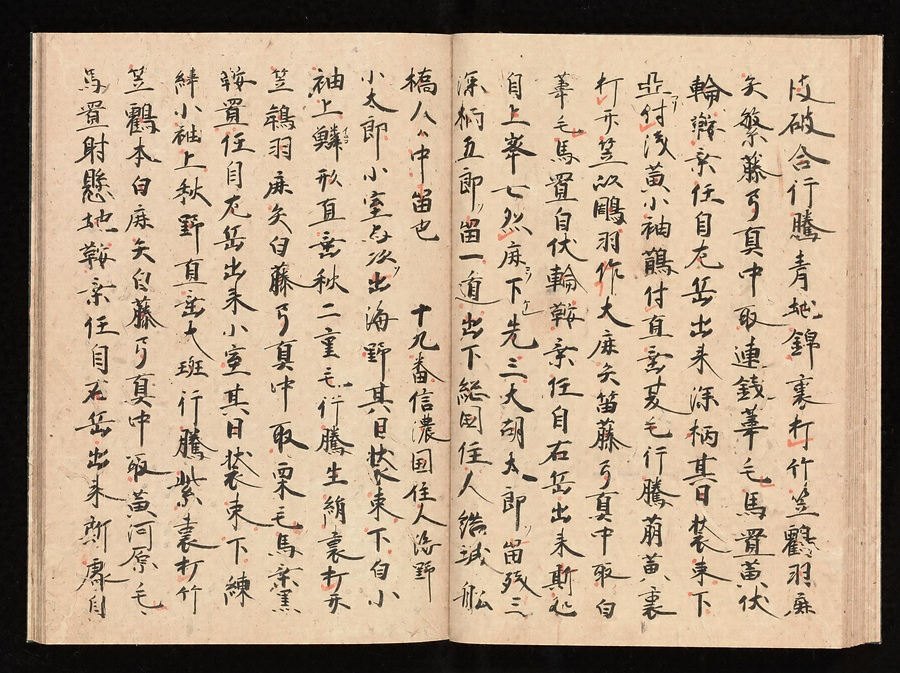 皮破合行騰青地錦裏打竹笠鸖羽麻
矢繁藤弓真中取連銭葦毛馬置黄伏
輪鞍乗任自左岳出来深柄其日装束下
付浅黄小袖付直垂夏毛行騰萠黄裏
打平笠以鵰羽作大麻矢笛藤弓真中取白
葦毛馬置白伏輪鞍乗任自右岳出来斯処
自上峯七烈麻下先三大胡太郎留残三
深柄五郎留一逍出下総国住人結城舩
橋人〻中留也 十九番信濃国住人海野
小太郎小室与次出海野其日装束下白小
袖上鱗形直垂秋二重毛行騰生絹裏打平
笠鵜羽麻矢白藤弓真中取栗毛馬乗黒
鞍置任自左岳出来小室其日装束下練
小袖上秋野直垂大斑行騰紫裏打竹
笠鸖本白麻矢白藤弓真中取黄河原毛
馬置射懸地鞍乗任自右岳出来斯處自